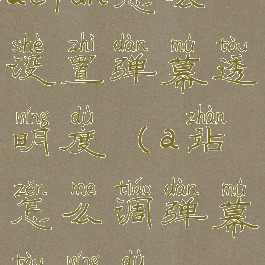 shè zhì dàn mù tòu
设置弹幕透
míng dù zhàn
明度（a站
zěn me tiáo dàn mù
怎么调弹幕
tòu míng dù